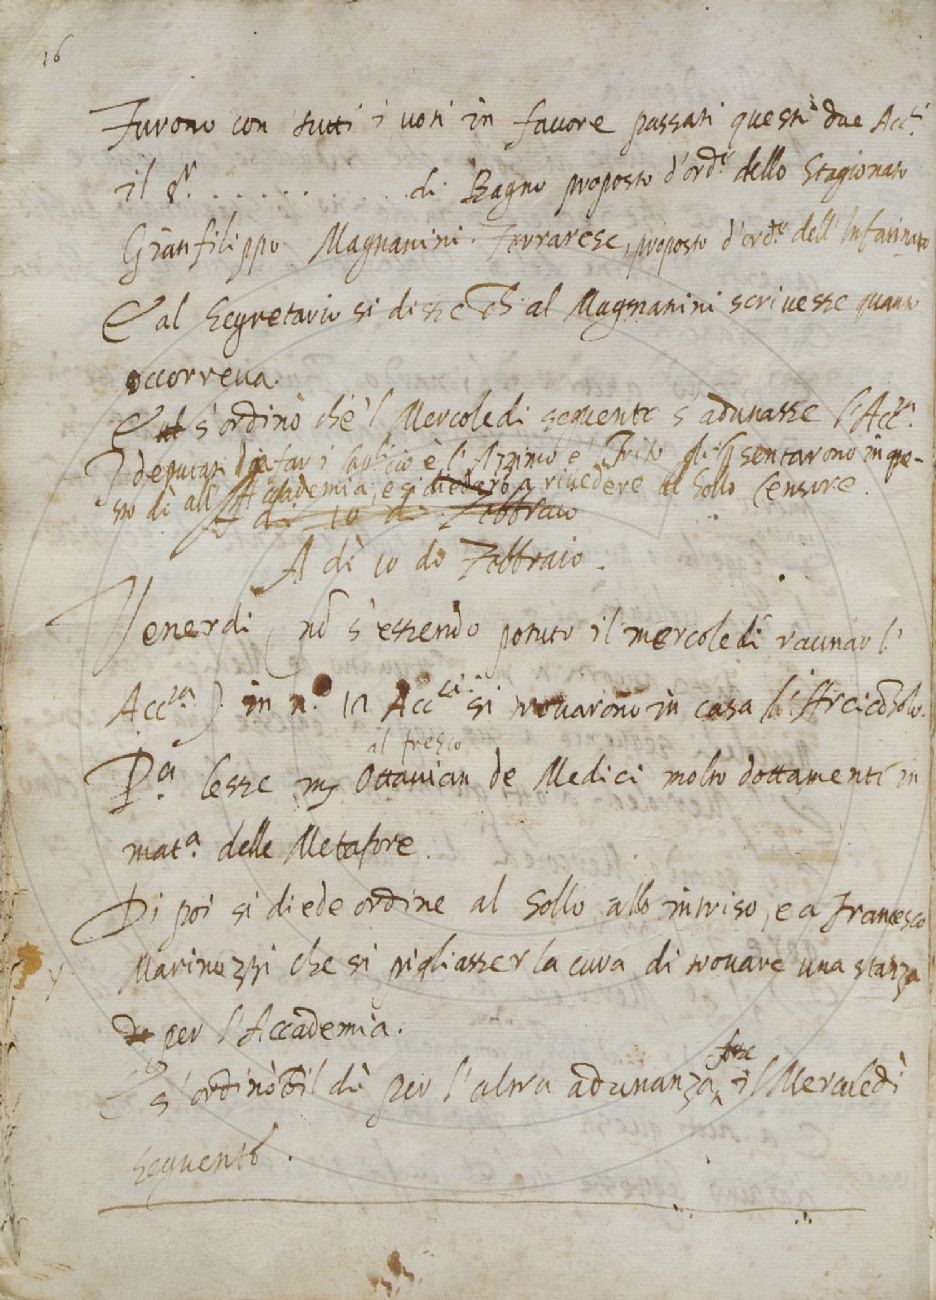 16
Furono con tutti i voti in favore passati questi due Acc.i
il Sr. . . . . . . . . di Bagno proposto d'ord.e dello Stagionato
Gianfilippo Magnanini Ferrarese, proposto d'ord.e dell'Infarinato
E al Segretario si disse ch al Magnanini scrivesse quanto
occorreva.
E s'ordinò che'l Mercoledi seguente s'adunasse l'Acc.a
I deputati a far i capi cio è l'Azzimo e'l Trito gli psentarono in que-
sto di all'Accademia, e si diedero a rivedere al Sollo Censore.
A di 10 di Febbraio
A dì 10 di Febbraio.
Venerdi (nō s'essendo potuto il mercoledi raunar l'
Acc.za) in n.o 12 Acc.ci si trovarono in casa l'Arcicōsolo.
al fresco
P.a lesse mỹ Ottavian de Medici molto dottamente in
mat.a delle Metafore.
Di poi si diede ordine al Sollo allo intriso, e a Francesco
Marinozzi che si pigliasser la cura di trovare una stanza
per l'Accademia.
E s'ordinò ch il dì per l'altra adunanza fosse il Mercoledì
seguente.